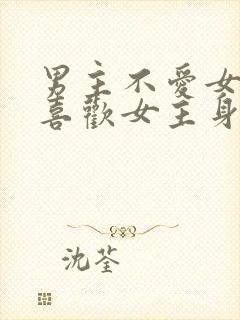 男主不愛女
喜歡女主身
沈荃